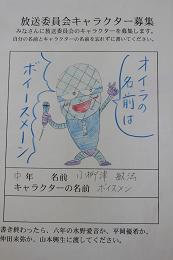 放送委員会キャラクター募集
みなさんに放送委員会のキャラクターを募集します。
自分の名前とキャラクターの名前を忘れずに書いてください。
オイラの
名前は
ボイースメーン
年 名前 小柳津
キャラクターの名前 ボイスメン
書き終わったら、六年の水野愛音か、平岡優希か、
仲田未弥か、山本興生に渡してください。